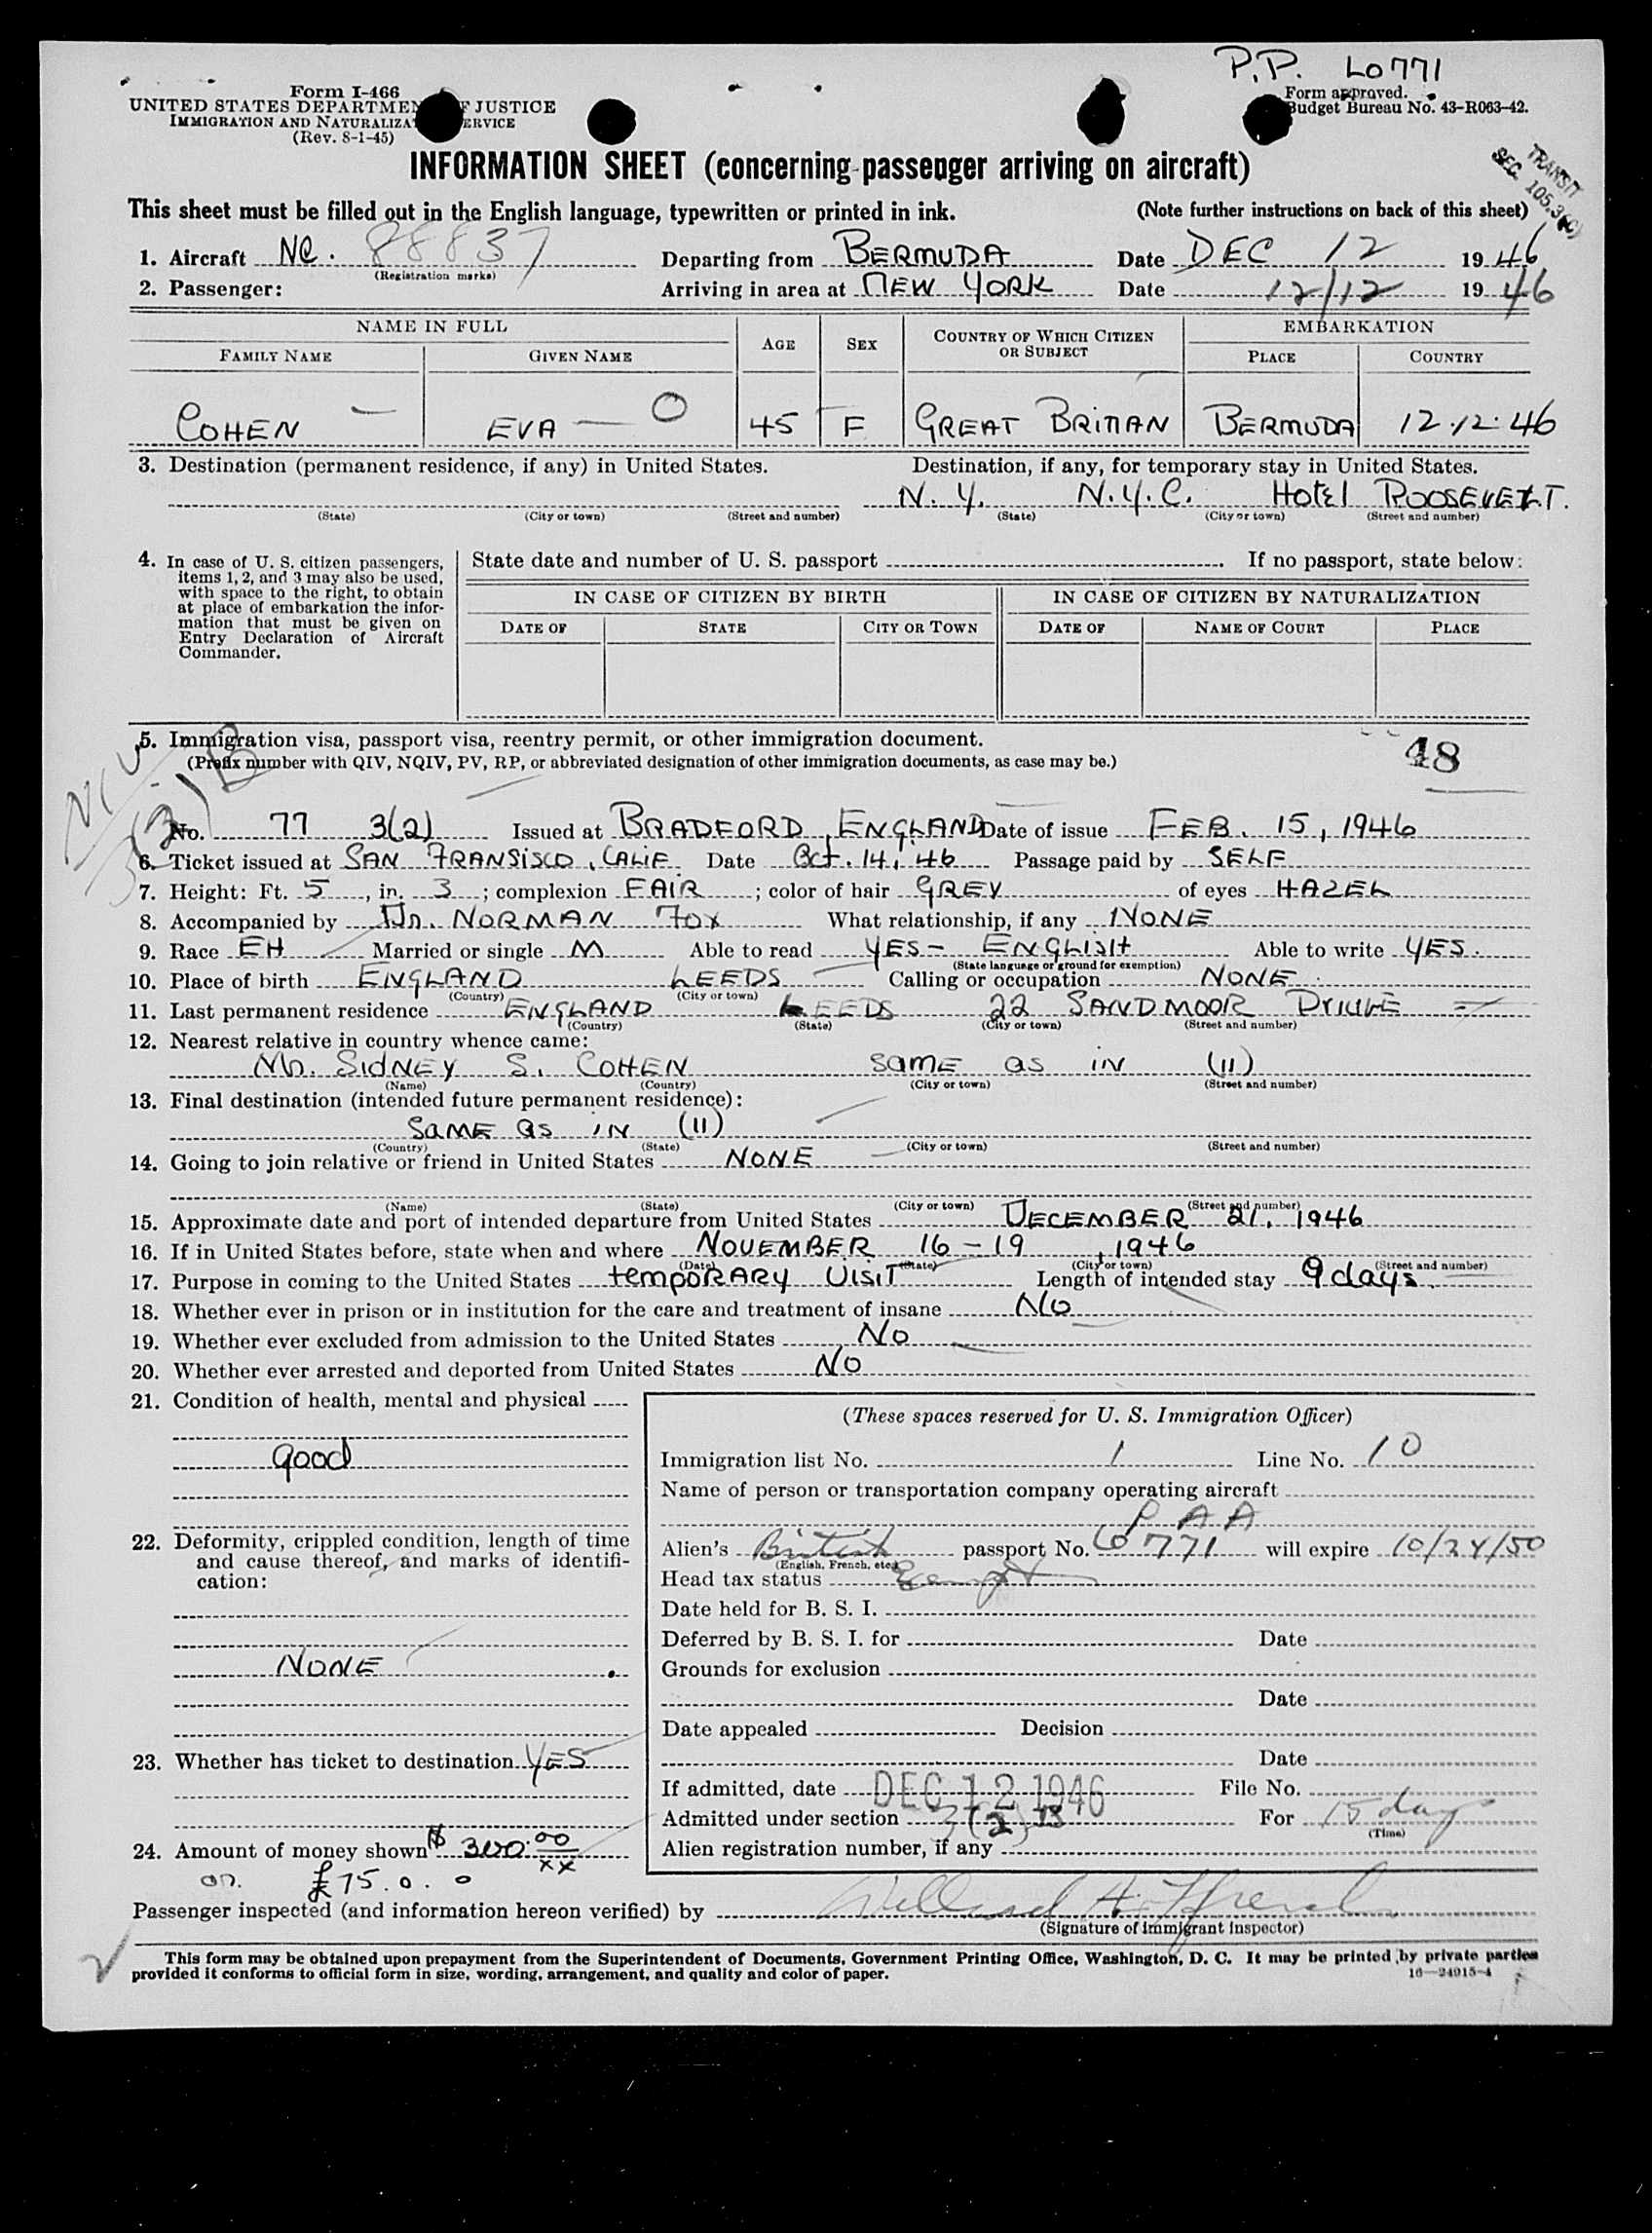 P.P. LO771
Form I-466
UNITED STATES DEPARTMEN F JUSTICE
IMMIGRATION AND NATURALIZA ERVICE
(Rev. 8-1-45)
Form approved.
Budget Bureau No. 43-R063-42.
TRANSIT
SEC. 105.3(C)
INFORMATION SHEET (concerning passenger arriving on aircraft)
This sheet must be filled out in the English language, typewritten or printed in ink. (Note further instructions on back of this sheet)
1. Aircraft NC. 88837 Departing from BERMUDA Date DEC 12 1946
(Registration marks)
2. Passenger: Arriving in area at NEW YORK Date 12/12 1946
NAME IN FULL AGE SEX COUNTRY OF WHICH CITIZEN OR SUBJECT EMBARKATION
FAMILY NAME GIVEN NAME PLACE COUNTRY
COHEN — EVA — O 45 F GREAT BRITIAN BERMUDA 12.12.46
3. Destination (permanent residence, if any) in United States. Destination, if any, for temporary stay in United States.
N.Y. N.Y.C. Hotel ROOSEVELT.
(State) (City or town) (Street and number) (State) (City or town) (Street and number)
4. In case of U. S. citizen passengers, items 1, 2, and 3 may also be used, with space to the right, to obtain at place of embarkation the information that must be given on Entry Declaration of Aircraft Commander.
State date and number of U. S. passport . If no passport, state below:
IN CASE OF CITIZEN BY BIRTH IN CASE OF CITIZEN BY NATURALIZATION
DATE OF STATE CITY OR TOWN DATE OF NAME OF COURT PLACE
5. Immigration visa, passport visa, reentry permit, or other immigration document.
(Prefix number with QIV, NQIV, PV, RP, or abbreviated designation of other immigration documents, as case may be.)
48
NIV
3(2)B
No. 77 3(2) Issued at BRADFORD, ENGLAND Date of issue FEB. 15, 1946
6. Ticket issued at SAN FRANSISCO, CALIF. Date Oct. 14, 46 Passage paid by SELF
7. Height: Ft. 5, in. 3; complexion FAIR; color of hair GREY of eyes HAZEL
8. Accompanied by Mr. NORMAN FOX What relationship, if any NONE
9. Race EH Married or single M Able to read YES - ENGLISH Able to write YES.
(State language or ground for exemption)
10. Place of birth ENGLAND LEEDS Calling or occupation NONE
(Country) (City or town)
11. Last permanent residence ENGLAND LEEDS 22 SANDMOOR DRIVE
(Country) (State) (City or town) (Street and number)
12. Nearest relative in country whence came:
Mr. SIDNEY S. COHEN SAME as in (11)
(Name) (Country) (City or town) (Street and number)
13. Final destination (intended future permanent residence):
SAME as in (11)
(Country) (State) (City or town) (Street and number)
14. Going to join relative or friend in United States NONE
(Name) (State) (City or town) (Street and number)
15. Approximate date and port of intended departure from United States DECEMBER 21, 1946
16. If in United States before, state when and where NOVEMBER 16 - 19, 1946
(Date) (State) (City or town) (Street and number)
17. Purpose in coming to the United States temporary visit Length of intended stay 9 days.
18. Whether ever in prison or in institution for the care and treatment of insane No
19. Whether ever excluded from admission to the United States No
20. Whether ever arrested and deported from United States No
21. Condition of health, mental and physical
good
22. Deformity, crippled condition, length of time and cause thereof, and marks of identification:
NONE
23. Whether has ticket to destination YES
24. Amount of money shown $ 300.00/xx
on. £75.0.0
(These spaces reserved for U. S. Immigration Officer)
Immigration list No. 1 Line No. 10
Name of person or transportation company operating aircraft
P A A
Alien's British passport No. LO771 will expire 10/24/50
(English, French, etc.)
Head tax status Exempt
Date held for B. S. I.
Deferred by B. S. I. for Date
Grounds for exclusion
Date
Date appealed Decision
Date
If admitted, date DEC 12 1946 File No.
Admitted under section 3(2) B For 15 days
(Time)
Alien registration number, if any
Passenger inspected (and information hereon verified) by
(Signature of immigrant inspector)
This form may be obtained upon prepayment from the Superintendent of Documents, Government Printing Office, Washington, D. C. It may be printed by private parties
provided it conforms to official form in size, wording, arrangement, and quality and color of paper. 16—24915-4